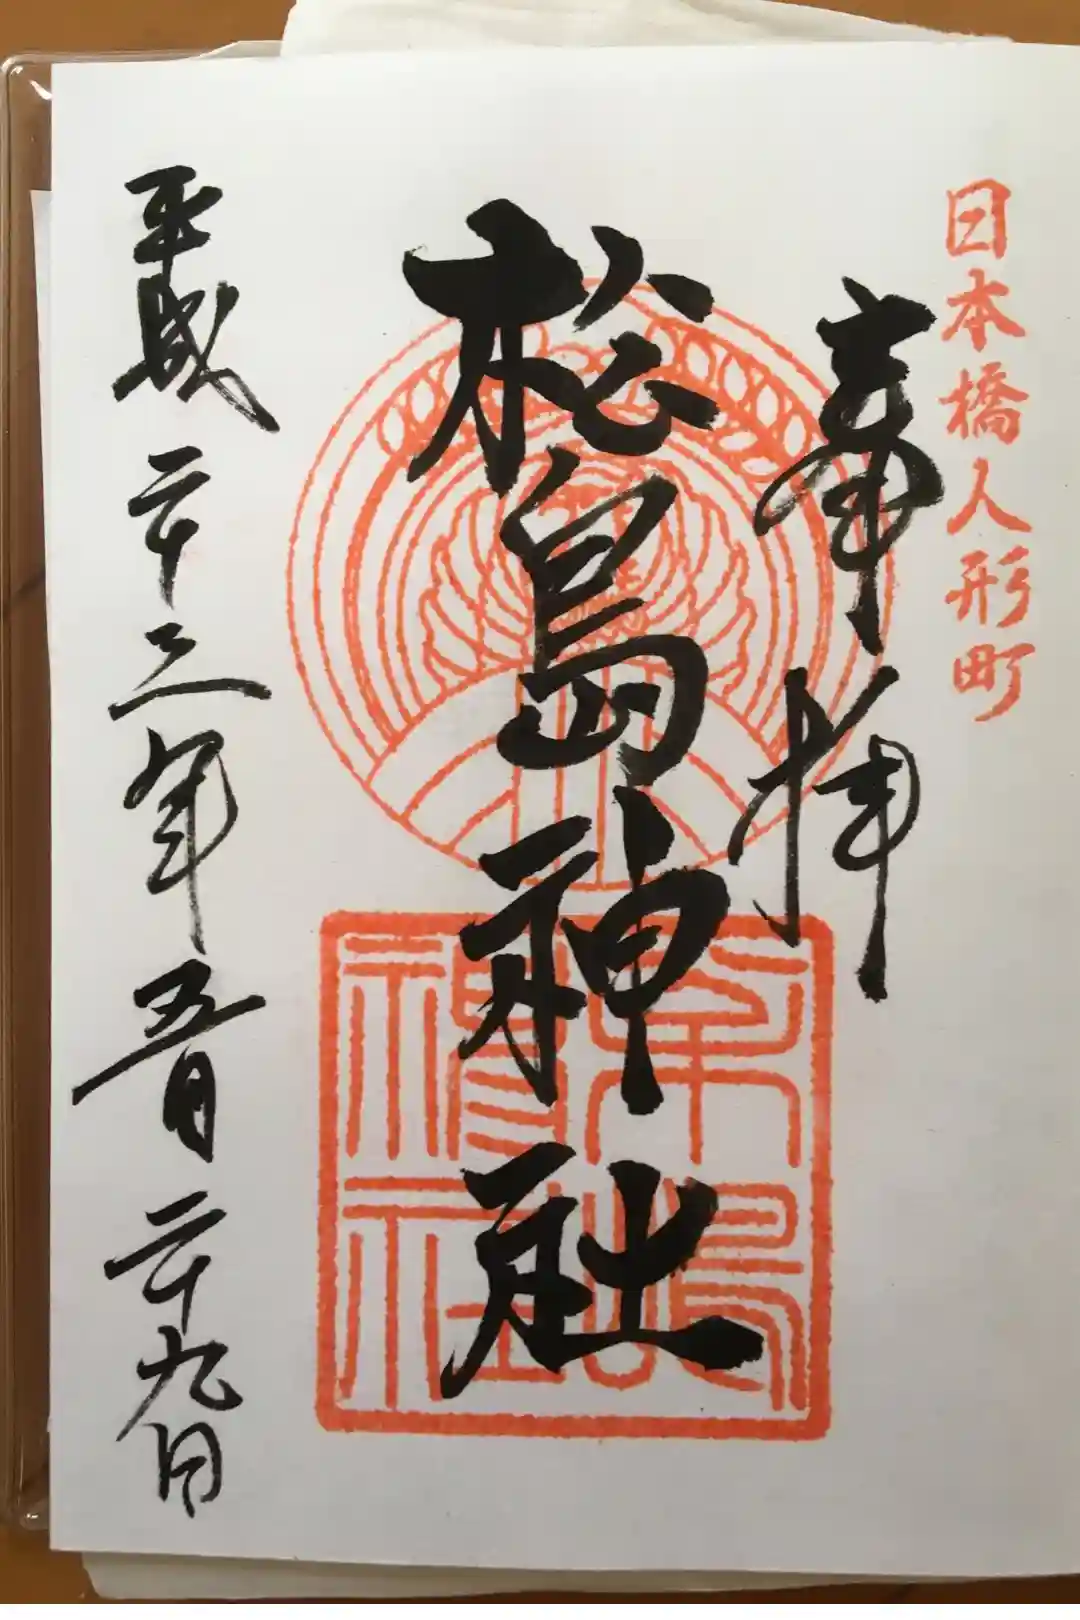 日本橋人形町
奉拝
松島神社
平成二十三年五月二十九日